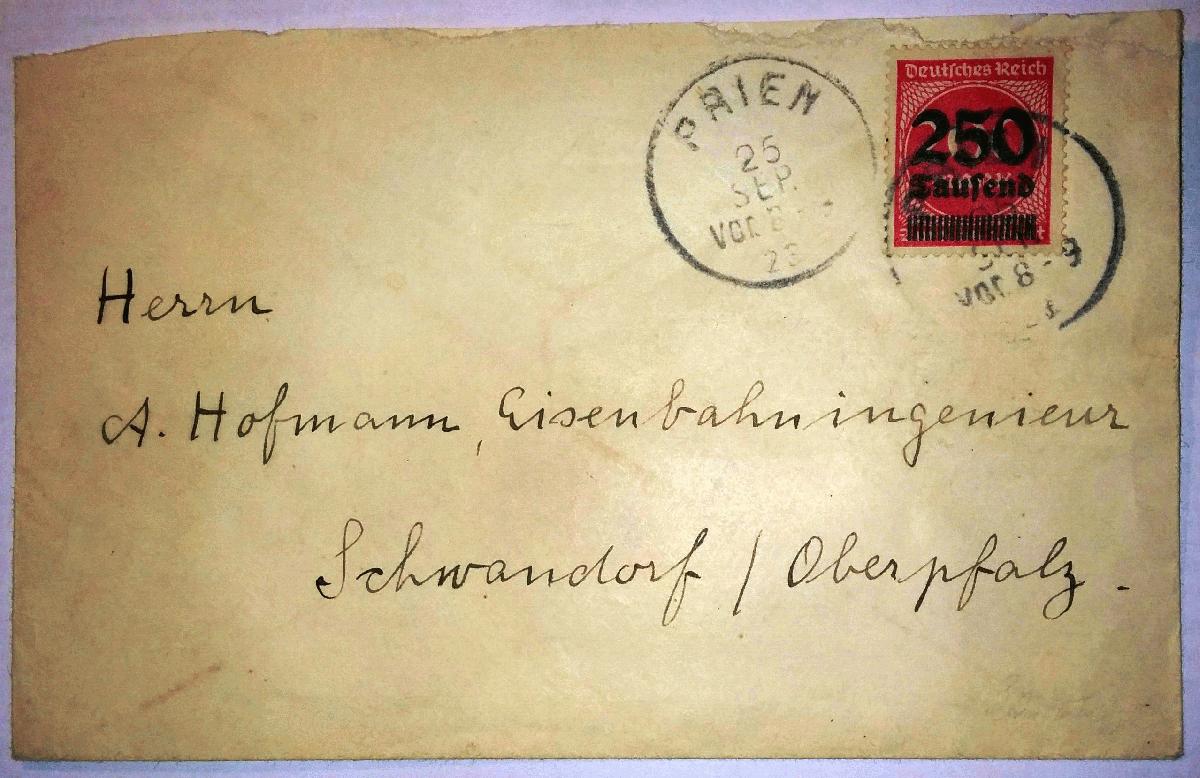 PRIEN
25
SEP.
VOR. 8
23
Deutsches Reich
250
Tausend
VOR. 8-9
Herrn
A. Hofmann, Eisenbahningenieur
Schwandorf / Oberpfalz.